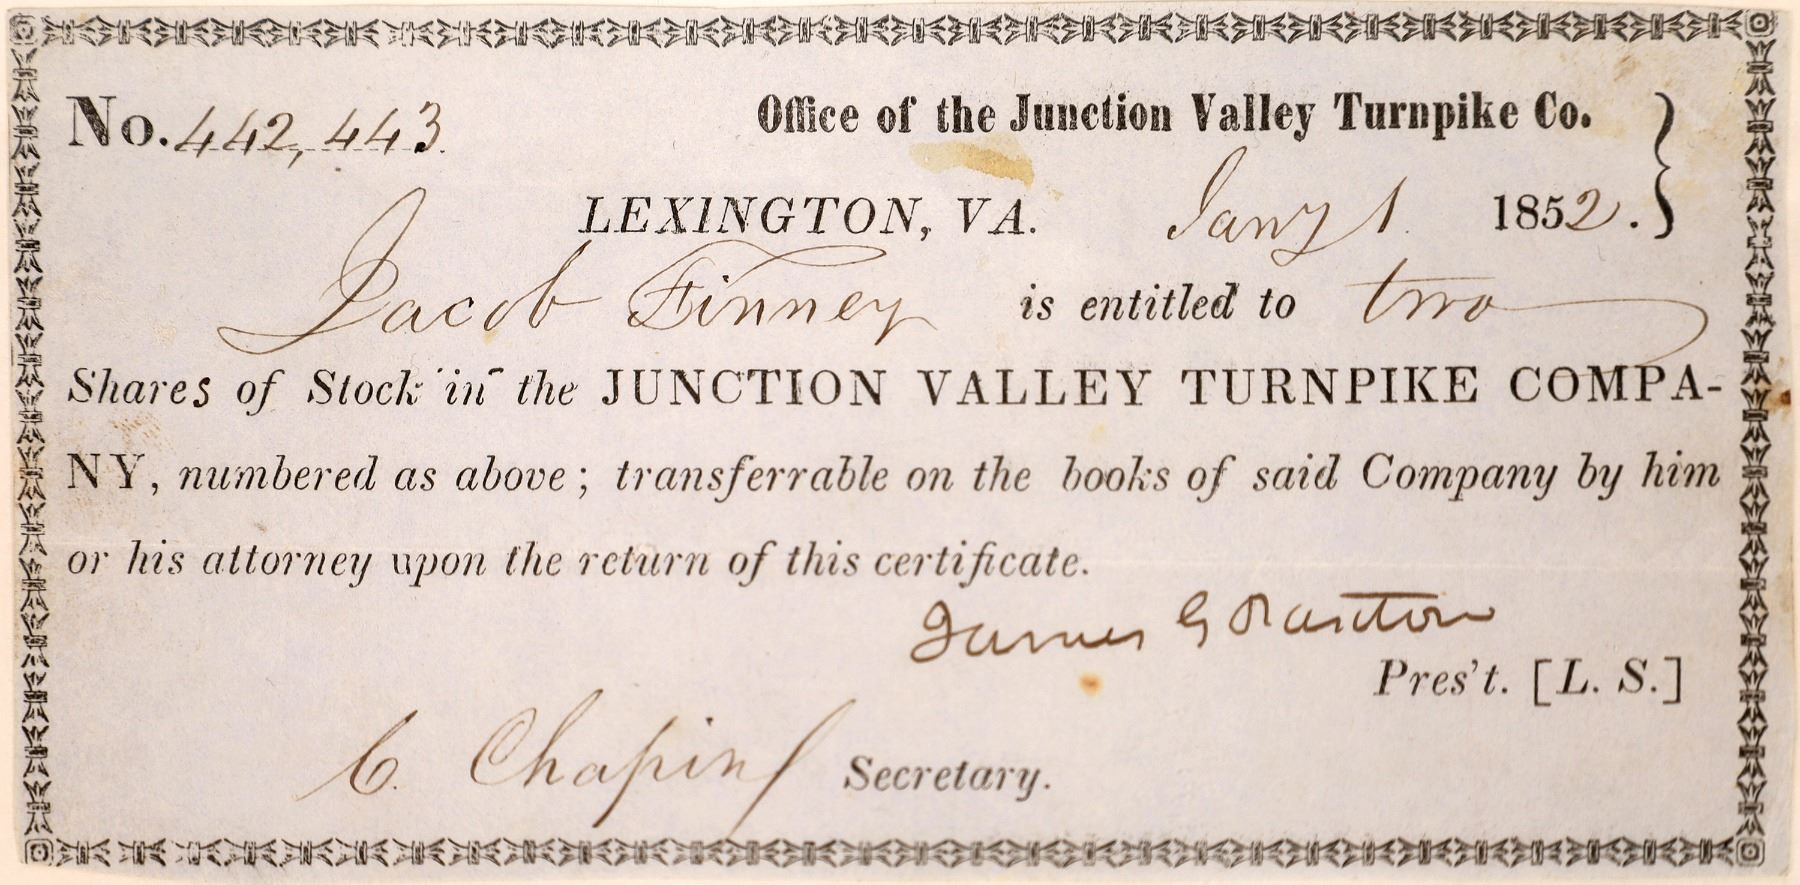 No. 442, 443
Office of the Junction Valley Turnpike Co.
LEXINGTON, VA. Jany 1 1852.
Jacob Finney is entitled to two
Shares of Stock in the JUNCTION VALLEY TURNPIKE COMPA-
NY, numbered as above; transferrable on the books of said Company by him
or his attorney upon the return of this certificate.
James G Paxton
Pres't. [L. S.]
C. Chapin Secretary.